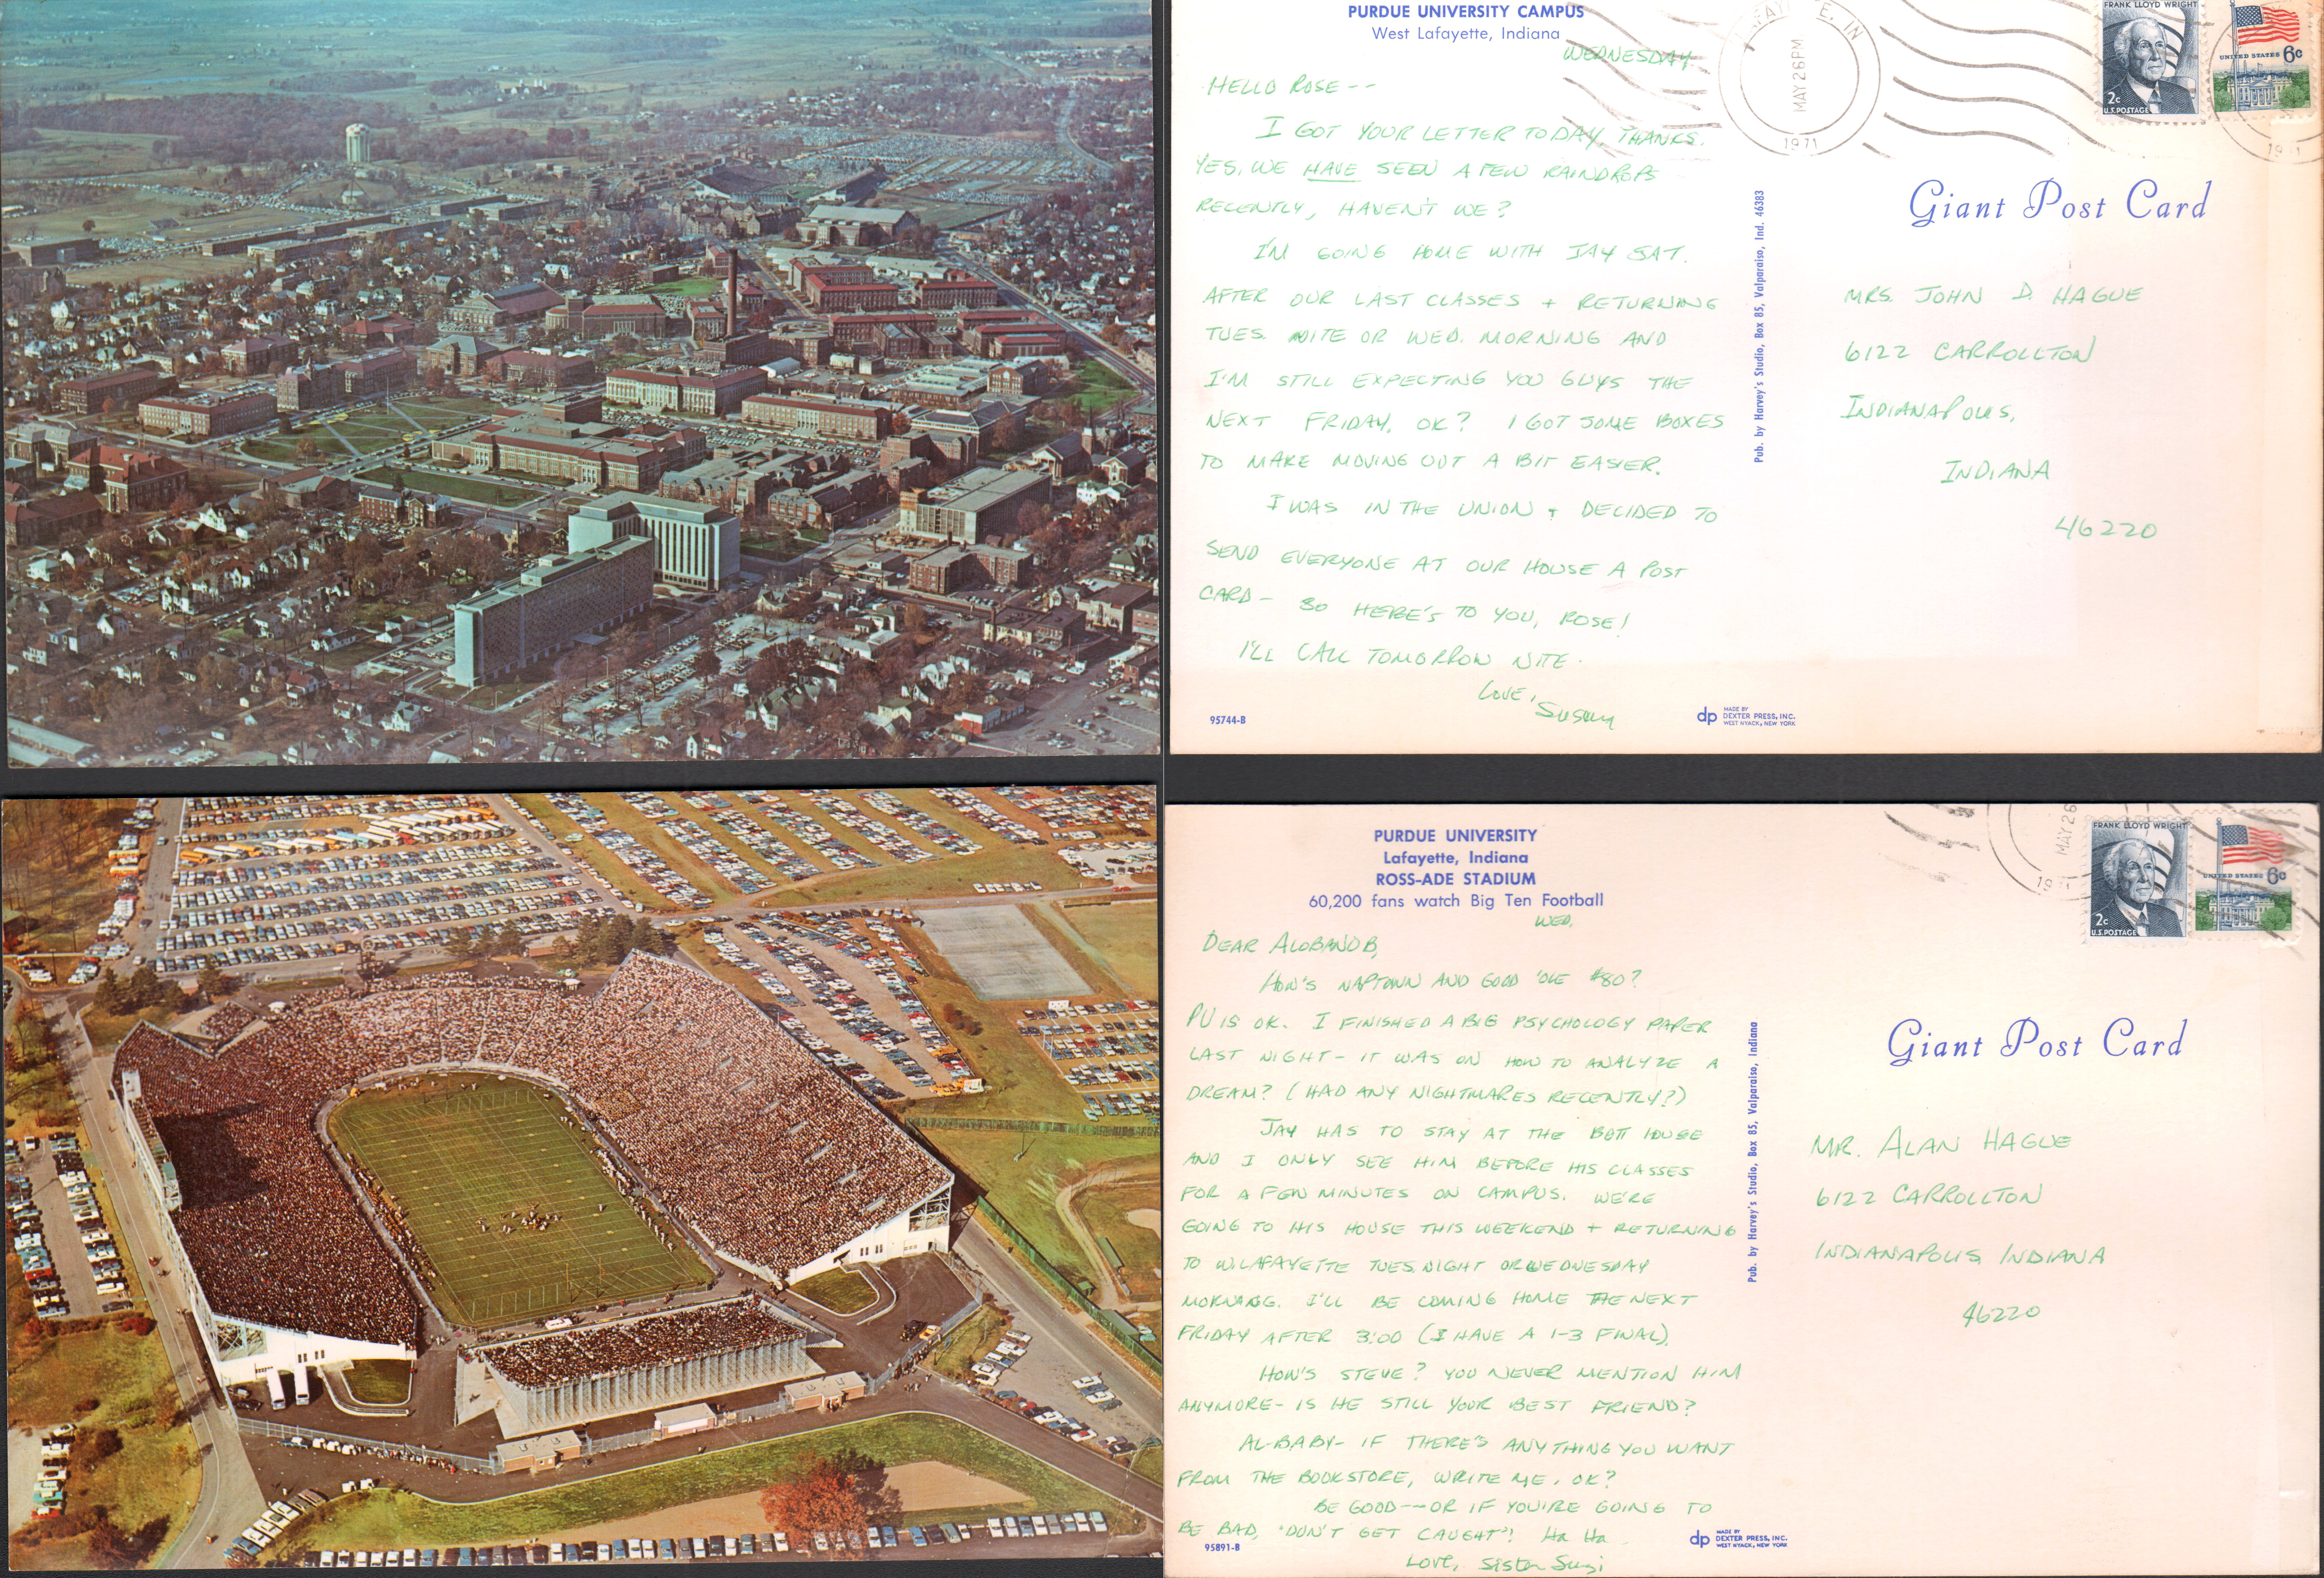 PURDUE UNIVERSITY CAMPUS
West Lafayette, Indiana
WEDNESDAY
HELLO ROSE --
I GOT YOUR LETTER TODAY, THANKS.
YES, WE HAVE SEEN A FEW RAINDROPS
RECENTLY, HAVEN'T WE?
I'M GOING HOME WITH JAY SAT.
AFTER OUR LAST CLASSES + RETURNING
TUES. NITE OR WED. MORNING AND
I'M STILL EXPECTING YOU GUYS THE
NEXT FRIDAY, OK? I GOT SOME BOXES
TO MAKE MOVING OUT A BIT EASIER.
I WAS IN THE UNION + DECIDED TO
SEND EVERYONE AT OUR HOUSE A POST
CARD - SO HERE'S TO YOU, ROSE!
I'LL CALL TOMORROW NITE.
LOVE,
Susan
95744-B
dp MADE BY
DEXTER PRESS, INC.
WEST NYACK, NEW YORK
Pub. by Harvey's Studio, Box 85, Valparaiso, Ind. 46383
E, IN
MAY 26 PM
1971
FRANK LLOYD WRIGHT
2c
U.S. POSTAGE
UNITED STATES 6c
Giant Post Card
MRS. JOHN D. HAGUE
6122 CARROLLTON
INDIANAPOLIS,
INDIANA
46220
PURDUE UNIVERSITY
Lafayette, Indiana
ROSS-ADE STADIUM
60,200 fans watch Big Ten Football
WED.
DEAR
HOW'S NAPTOWN AND GOOD 'OLE #80?
PU IS OK. I FINISHED A BIG PSYCHOLOGY PAPER
LAST NIGHT - IT WAS ON HOW TO ANALYZE A
DREAM? (HAD ANY NIGHTMARES RECENTLY?)
JAY HAS TO STAY AT THE HOUSE
AND I ONLY SEE HIM BEFORE HIS CLASSES
FOR A FEW MINUTES ON CAMPUS. WE'RE
GOING TO HIS HOUSE THIS WEEKEND + RETURNING
TO W. LAFAYETTE TUES. NIGHT OR WEDNESDAY
MORNING. I'LL BE COMING HOME THE NEXT
FRIDAY AFTER 3:00 (I HAVE A 1-3 FINAL).
HOW'S STEVE? YOU NEVER MENTION HIM
ANYMORE - IS HE STILL YOUR BEST FRIEND?
AL-BABY - IF THERE'S ANYTHING YOU WANT
FROM THE BOOKSTORE, WRITE ME, OK?
BE GOOD -- OR IF YOU'RE GOING TO
BE BAD, "DON'T GET CAUGHT"! Ha Ha
LOVE, Sister Suzi
95891-B
dp MADE BY
DEXTER PRESS, INC.
WEST NYACK, NEW YORK
Pub. by Harvey's Studio, Box 85, Valparaiso, Indiana
MAY 26
FRANK LLOYD WRIGHT
2c
U.S. POSTAGE
UNITED STATES 6c
Giant Post Card
MR. ALAN HAGUE
6122 CARROLLTON
INDIANAPOLIS, INDIANA
46220